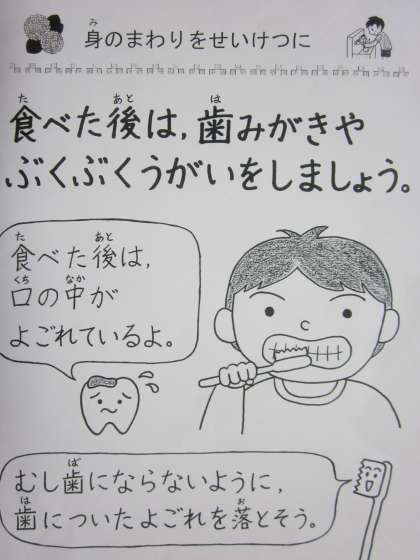 身のまわりをせいけつに
食べた後は,歯みがきや
ぶくぶくうがいをしましょう。
食べた後は,
口の中が
よごれているよ。
むし歯にならないように,
歯についたよごれを落とそう。